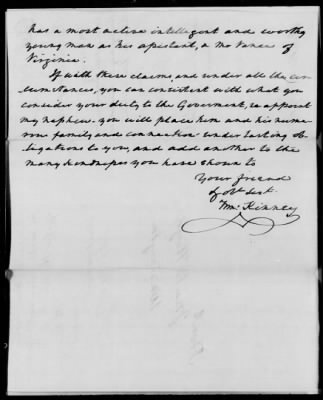 has a most active intelligent and worthy
young man as his assistant, a Mr Vance of
Virginia.
If with these claims, and under all the cir-
cumstances, you can consistent with what you
consider your duty to the Goverment, so appoint
my nephew. you will place him and his nume-
rous family and connection under lasting ob-
ligations to you, and add another to the
many kindnesses you have shown to
Your friend
& obt. Servt.
Wm. Kinney